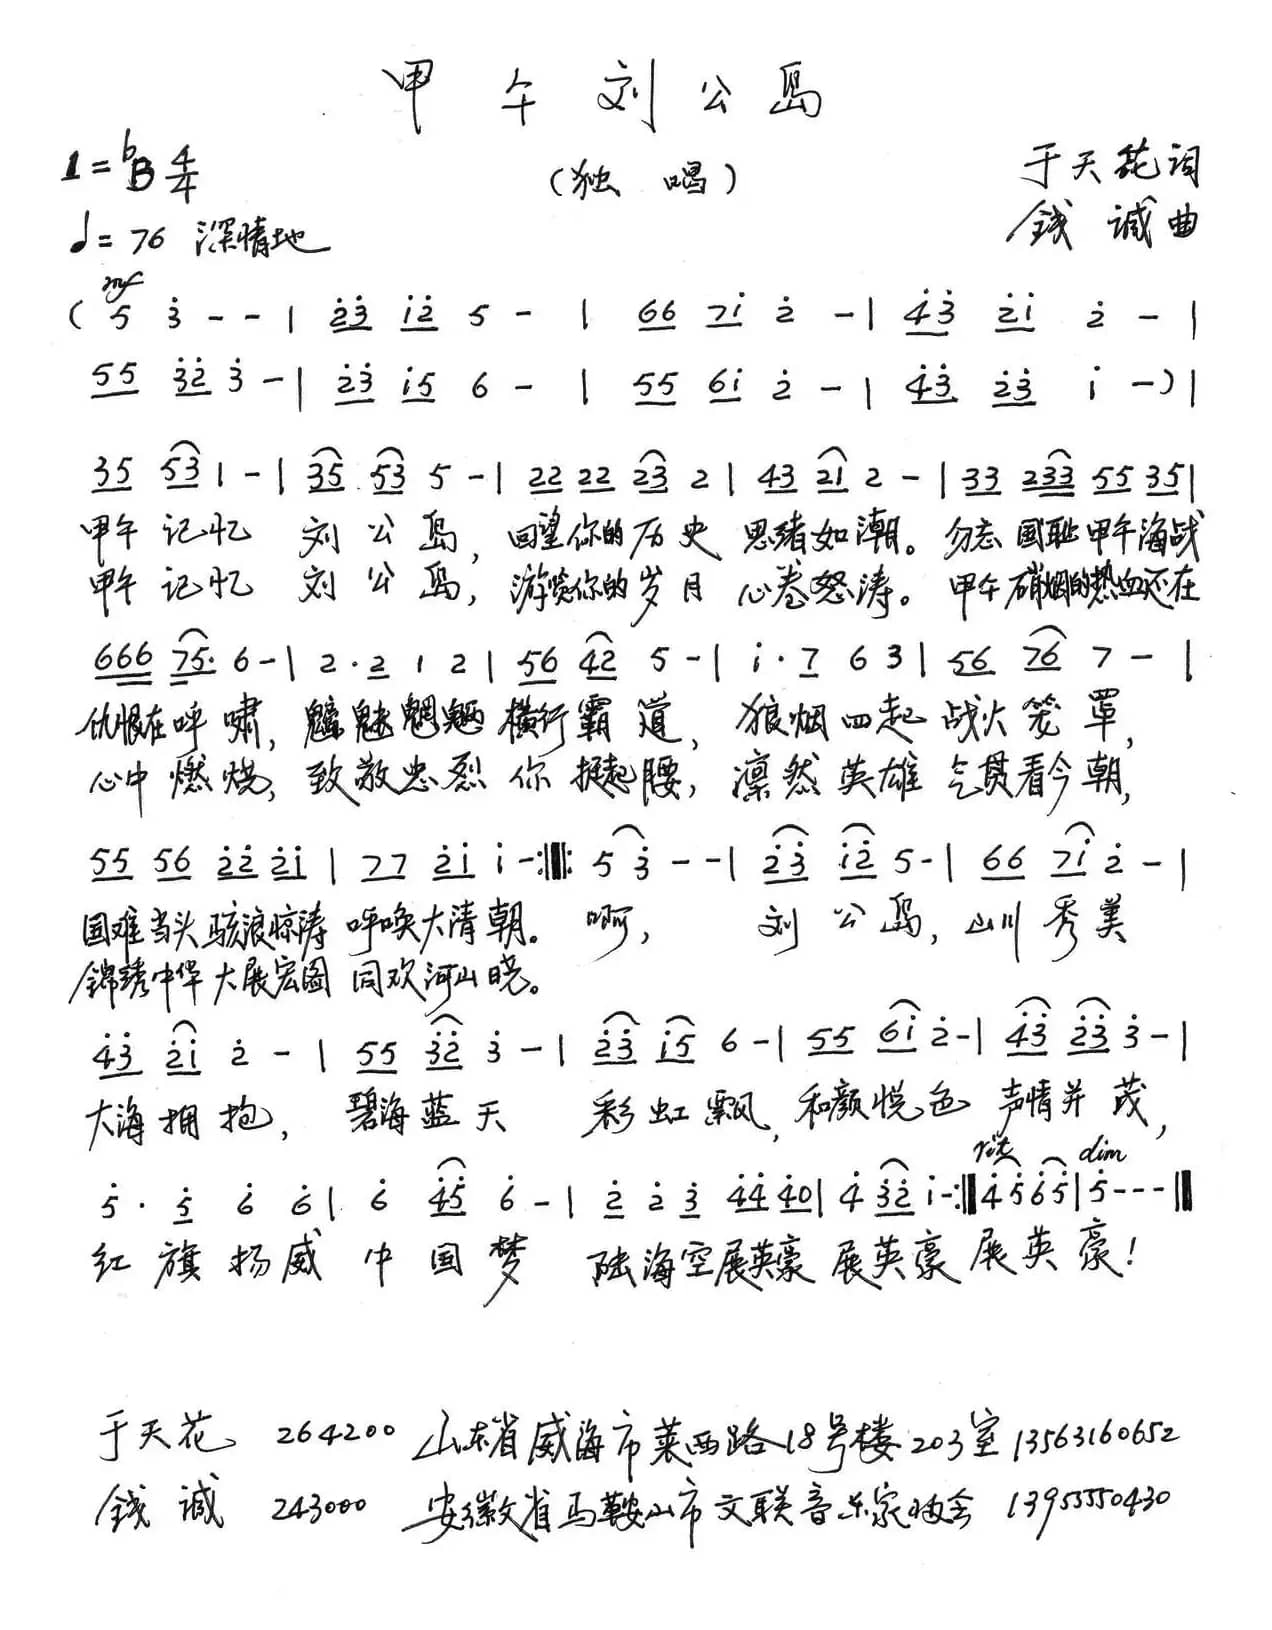 甲午刘公岛
1=♭B 4/4
（独 唱）
于天花词
♩=76 深情地
錢 诚曲
mf
( 5 3̇ - - | 2̇3̇ 1̇2̇ 5 - | 66 71̇ 2̇ - | 4̇3̇ 2̇1̇ 2̇ - |
55 3̇2̇ 3̇ - | 2̇3̇ 1̇5 6 - | 55 61̇ 2̇ - | 4̇3̇ 2̇3̇ 1̇ - ) |
35 53 1 - | 35 53 5 - | 22 22 23 2 | 43 21 2 - | 33 233 55 35 |
甲午 记忆 刘 公 岛，回望你的历史 思绪如潮。勿忘 国耻甲午海战
甲午 记忆 刘 公 岛，游览你的岁月 心卷怒涛。甲午 硝烟的热血还在
666 75· 6 - | 2·2 1 2 | 56 42 5 - | 1̇·7 6 3 | 56 76 7 - |
仇恨在呼 啸，魑魅魍魉 横行霸 道，狼烟四起 战火笼 罩，
心中 燃 烧，致敬忠烈 你 挺起腰，凛然英雄 气贯看今朝，
55 56 2̇2̇ 2̇1̇ | 77 2̇1̇ 1̇ - :‖: 5 3̇ - - | 2̇3̇ 1̇2̇ 5 - | 66 71̇ 2̇ - |
国难当头 骇浪惊涛 呼唤大清朝。 啊， 刘 公 岛，山川 秀 美
錦绣中华 大展宏图 同欢河山晓。
4̇3̇ 2̇1̇ 2̇ - | 55 3̇2̇ 3̇ - | 2̇3̇ 1̇5 6 - | 55 61̇ 2̇ - | 4̇3̇ 2̇3̇ 3̇ - |
大海 拥 抱， 碧海 蓝 天 彩 虹 飘，和颜悦色 声情并 茂，
rit dim
5̇·5̇ 6̇ 6̇ | 6̇ 4̇5̇ 6̇ - | 2̇ 2̇ 3̇ 4̇4̇ 4̇0 | 4̇ 3̇2̇ 1̇ - :‖ 4̇5̇6̇5̇ | 5̇ - - - ‖
红 旗 扬 威 中 国 梦 陆 海 空展英豪 展英豪 展 英 豪！
于天花 264200 山东省威海市莱西路18号楼203室 13563160652
錢 诚 243000 安徽省马鞍山市文联音乐家协会 13955550430